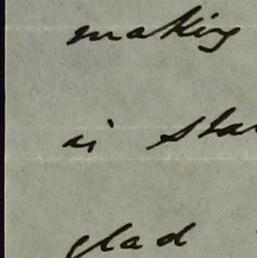 making
is
glad